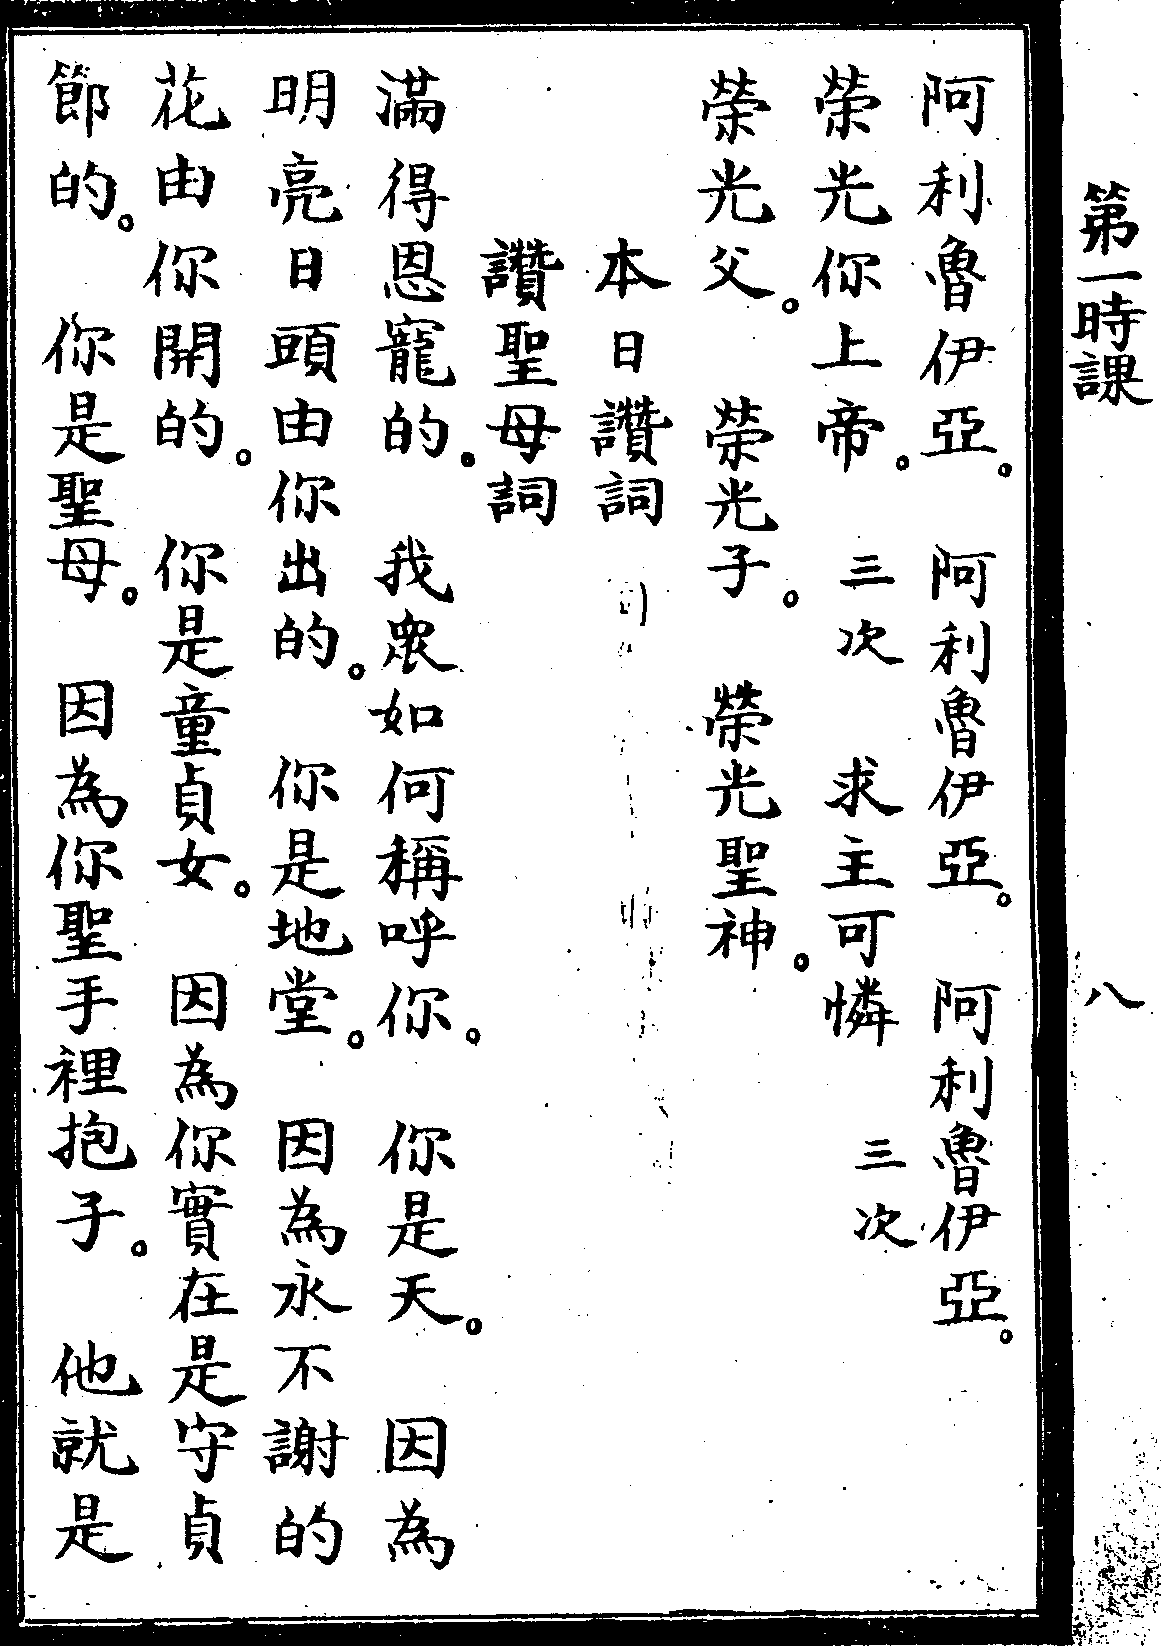 第一時課 八
阿利魯伊亞。 阿利魯伊亞。 阿利魯伊亞。
榮光你上帝。 三次 求主可憐 三次
榮光父。 榮光子。 榮光聖神。
本日讚詞
讚聖母詞
滿得恩寵的。 我衆如何稱呼你。 你是天。 因為
明亮日頭由你出的。 你是地堂。 因為永不謝的
花由你開的。 你是童貞女。 因為你實在是守貞
節的。 你是聖母。 因為你聖手裡抱子。 他就是